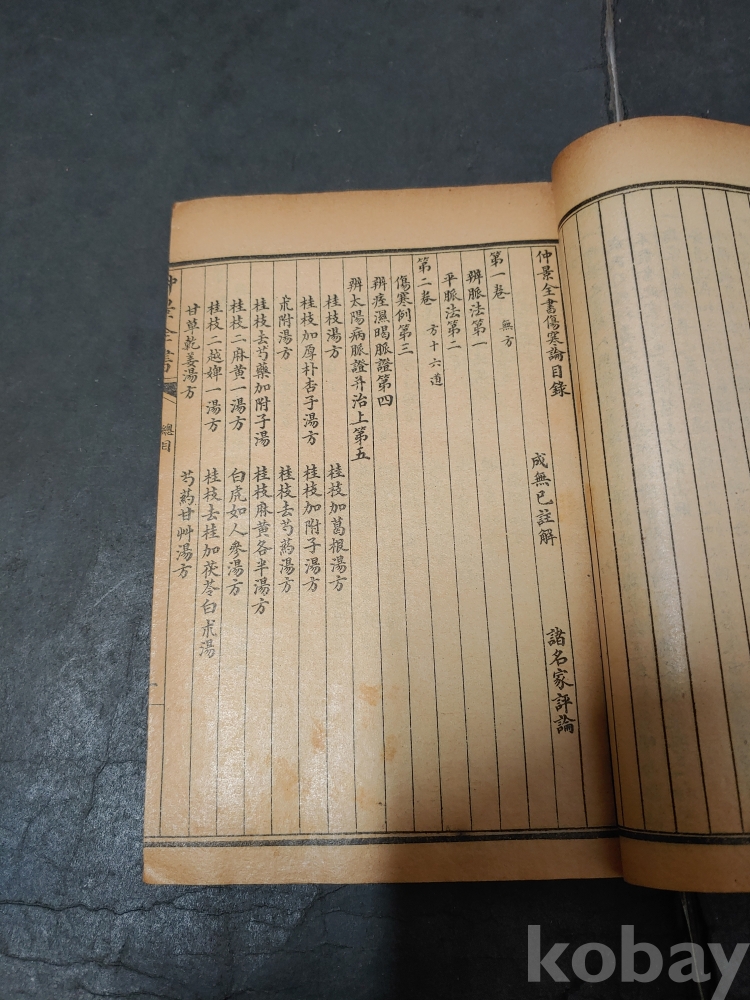 仲景全書傷寒論目錄 成無已註解 諸名家評論
第一卷 無方
辨脈法第一
平脈法第二
第二卷 方十六道
傷寒例第三
辨痓濕暍脈證第四
辨太陽病脈證并治上第五
桂枝湯方 桂枝加葛根湯方
桂枝加厚朴杏子湯方 桂枝加附子湯方
朮附湯方 桂枝去芍藥湯方
桂枝去芍藥加附子湯 桂枝麻黄各半湯方
桂枝二麻黄一湯方 白虎加人參湯方
桂枝二越婢一湯方 桂枝去桂加茯苓白朮湯
甘草乾姜湯方 芍药甘艸湯方
仲景全書 總目
kobay